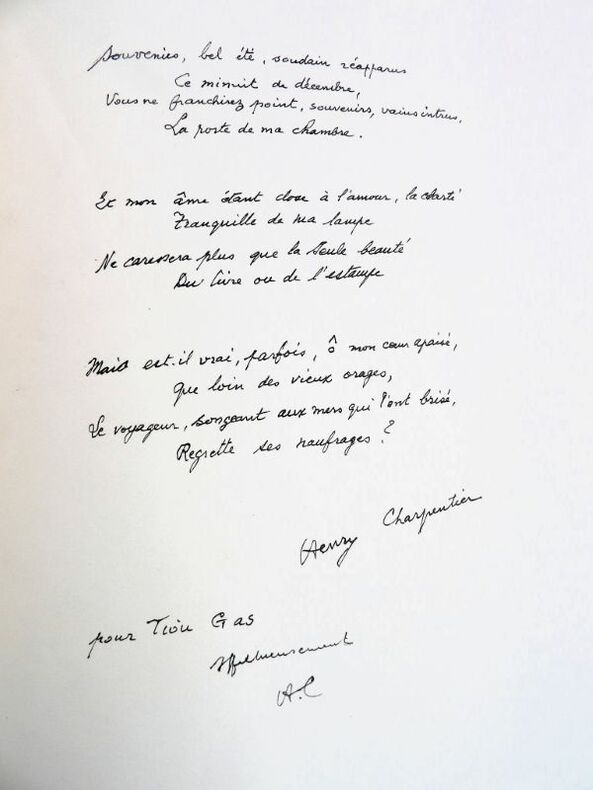 Souvenirs, bel été, soudain réapparus
Ce minuit de décembre,
Vous ne franchirez point, souvenirs, vains intrus,
La porte de ma chambre.
Et mon âme étant close à l'amour, la clarté
Tranquille de ma lampe
Ne caressera plus que la seule beauté
Du livre ou de l'estampe
Mais est-il vrai, parfois, ô mon cœur apaisé,
Que loin des vieux orages,
Le voyageur, songeant aux mers qui l'ont brisé,
Regrette ses naufrages ?
Henry Charpentier
pour Tiou Gas
affectueusement
H.C